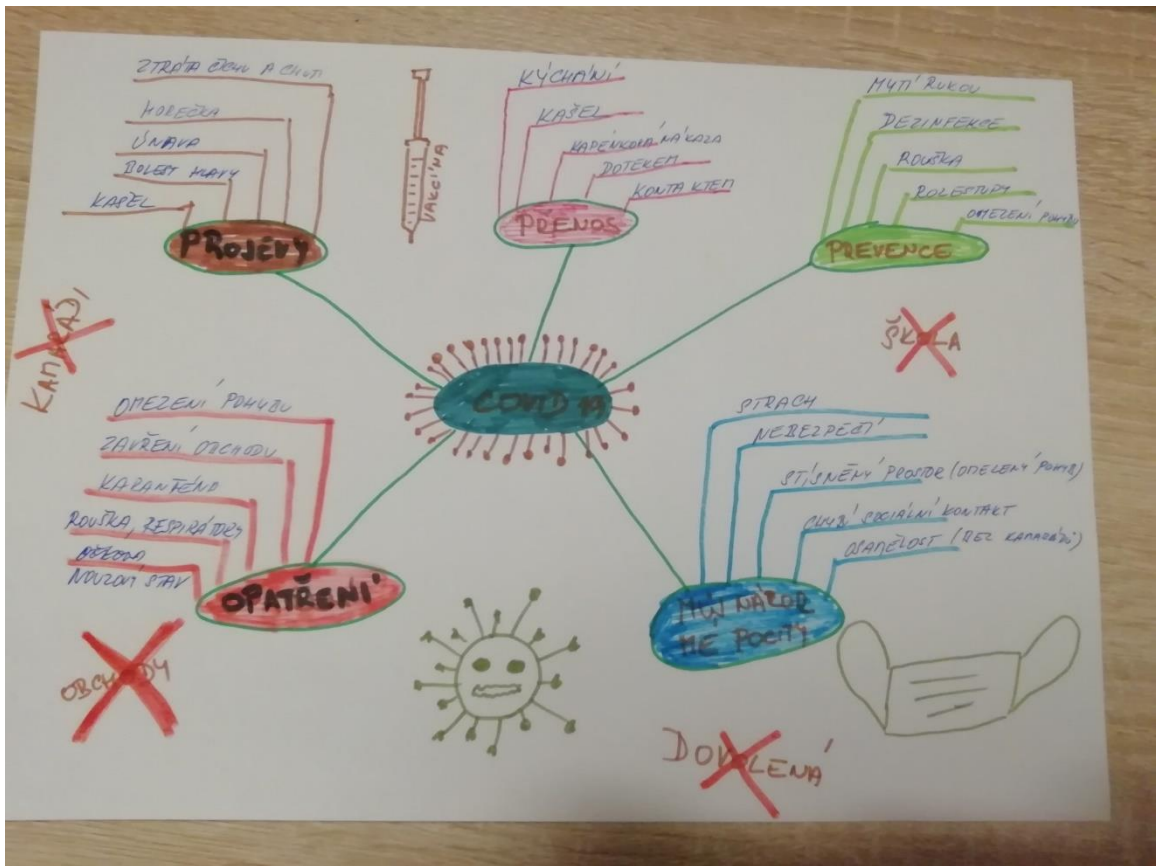 ZTRÁTA ČICHU A CHUTI
HOREČKA
ÚNAVA
BOLEST HLAVY
KAŠEL
PROJEVY
VAKCÍNA
KÝCHÁNÍ
KAŠEL
KAPÉNKOVÁ NÁKAZA
DOTEKEM
KONTAKTEM
PŘENOS
MYTÍ RUKOU
DEZINFEKCE
ROUŠKA
ROZESTUPY
OMEZENÍ POHYBU
PREVENCE
KAMARÁDI
ŠKOLA
COVID 19
OMEZENÍ POHYBU
ZAVŘENÍ OBCHODU
KARANTÉNA
ROUŠKA, RESPIRÁTORY
NOUZOVÝ STAV
OPATŘENÍ
STRACH
NEBEZPEČÍ
STÍSNĚNÝ PROSTOR (OMEZENÝ POHYB)
CHYBÍ SOCIÁLNÍ KONTAKT
OSAMĚLOST (BEZ KAMARÁDŮ)
MŮJ NÁZOR
MÉ POCITY
OBCHODY
DOVOLENÁ